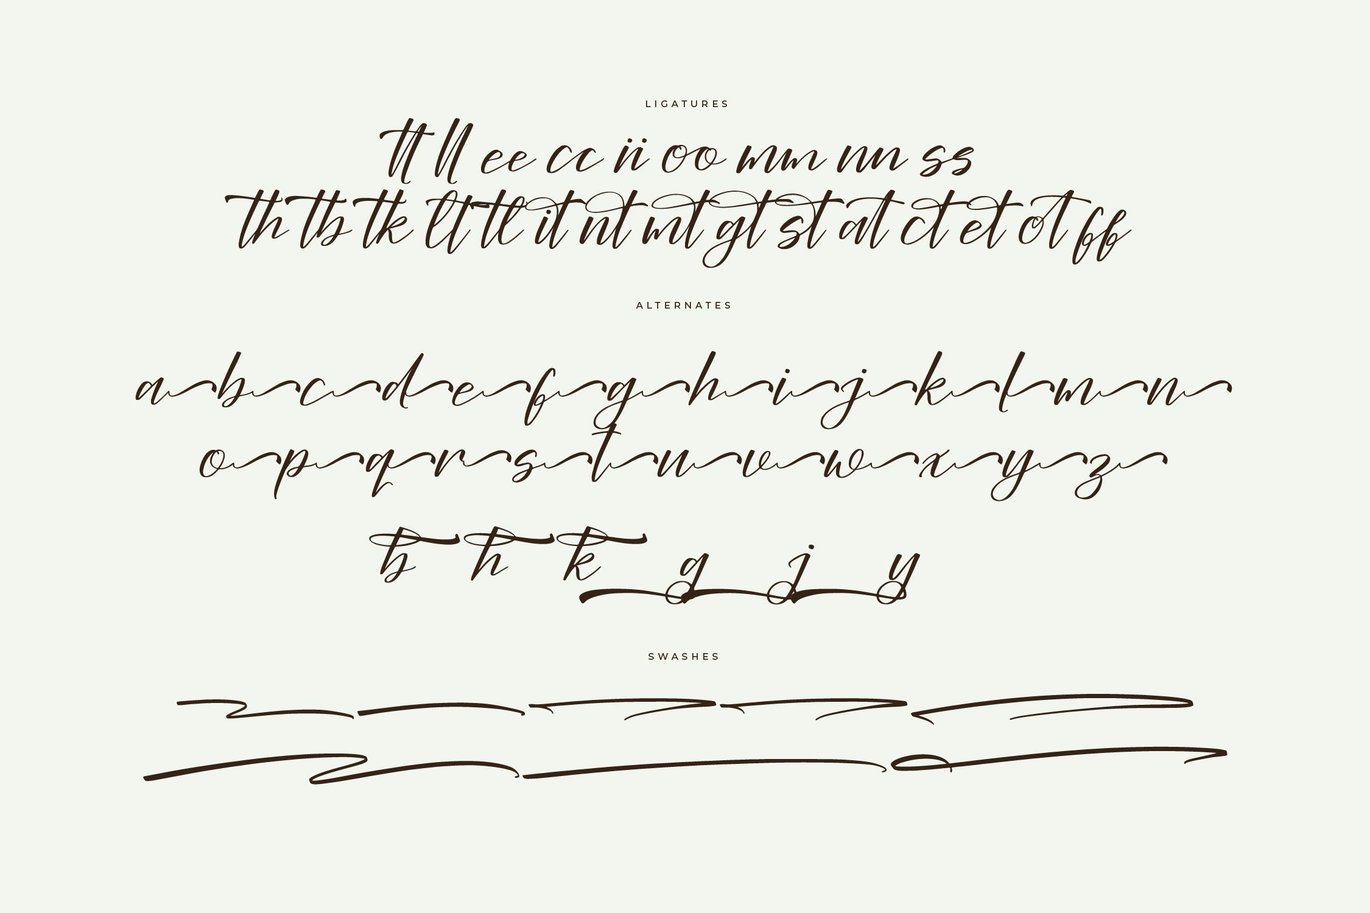 LIGATURES
tt ll ee cc ii oo mm nn ss
th tb tk lt tl it nt mt gt st at ct et ot ff
ALTERNATES
a b c d e f g h i j k l m n
o p q r s t u v w x y z
b h k g j y
SWASHES